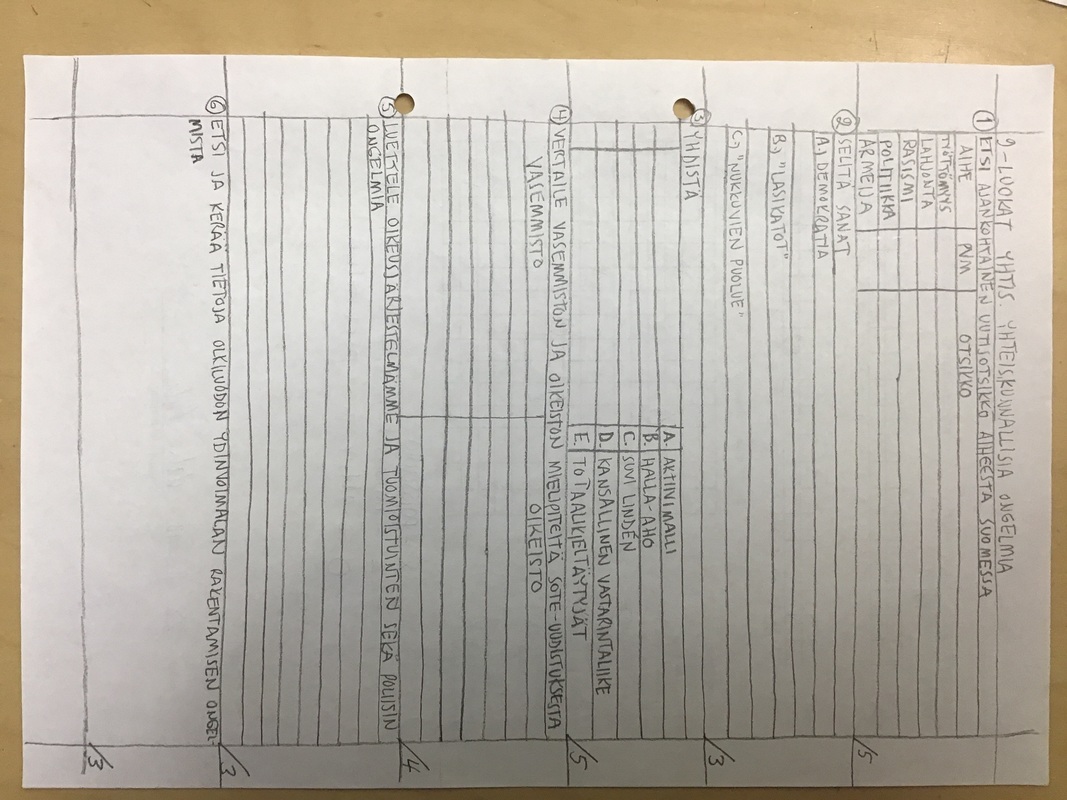 9-LUOKAT YHTIS. YHTEISKUNNALLISIA ONGELMIA
① ETSI AJANKOHTAINEN UUTISOTSIKKO AIHEESTA SUOMESSA
AIHE PVM OTSIKKO
TYÖTTÖMYYS
LAHJONTA
RASISMI
POLITIIKKA
ARMEIJA
/5
② SELITÄ SANAT
A) DEMOKRATIA
B) "LASIKATOT"
C) "NUKKUVIEN PUOLUE"
/3
③ YHDISTÄ
A. AKTIIVIMALLI
B. HALLA-AHO
C. SUVI LINDÉN
D. KANSALLINEN VASTARINTALIIKE
E. TOTAALIKIELTÄYTYJÄT
/5
④ VERTAILE VASEMMISTON JA OIKEISTON MIELIPITEITÄ SOTE-UUDISTUKSESTA
VASEMMISTO OIKEISTO
/4
⑤ LUETTELE OIKEUSJÄRJESTELMÄMME JA TUOMIOISTUINTEN SEKÄ POLIISIN
ONGELMIA
/3
⑥ ETSI JA KERÄÄ TIETOJA OLKILUODON YDINVOIMALAN RAKENTAMISEN ONGEL-
MISTA
/3